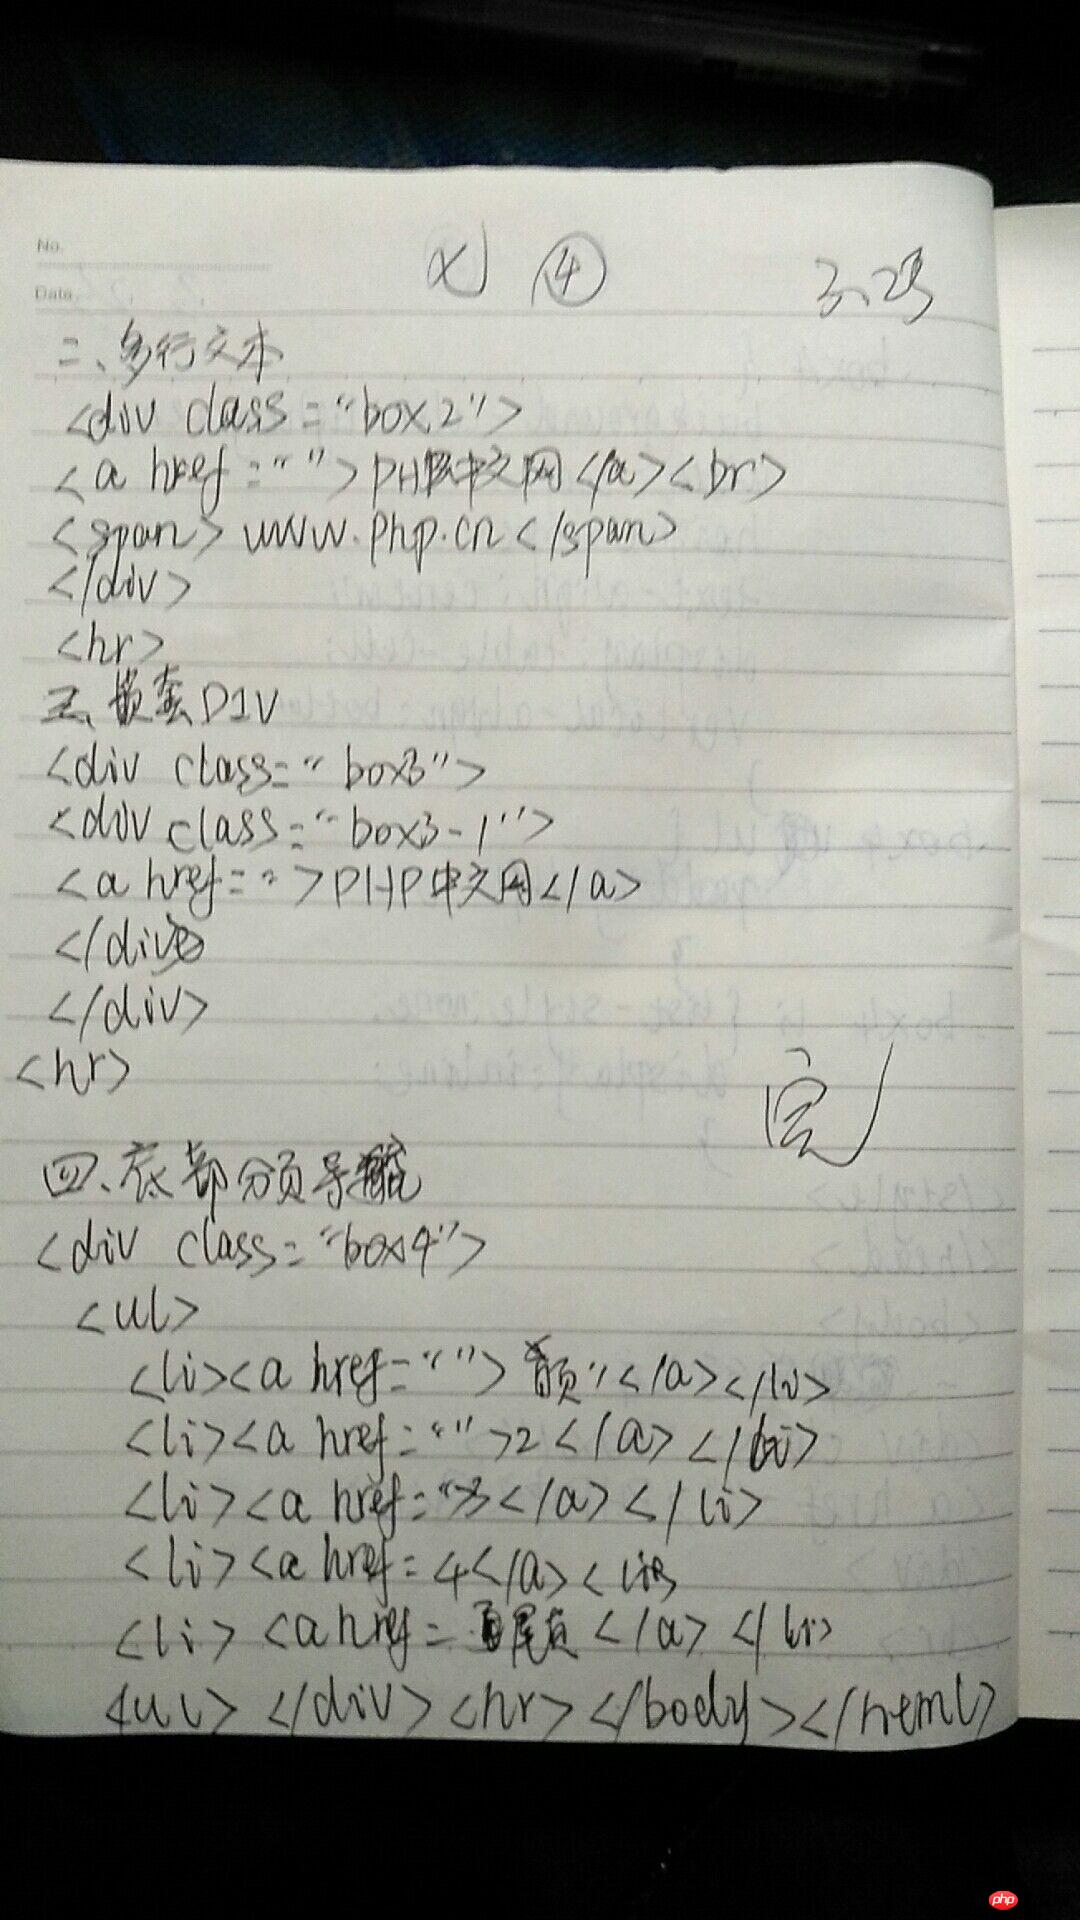 No.
Date
④
二、多行文本
<div class="box2">
<a href="">PHP中文网</a><br>
<span>www.php.cn</span>
</div>
<hr>
三、嵌套DIV
<div class="box3">
<div class="box3-1">
<a href="">PHP中文网</a>
</div>
</div>
<hr>
完
四、底部分页导航
<div class="box4">
<ul>
<li><a href="">首页</a></li>
<li><a href="">2</a></li>
<li><a href="">3</a></li>
<li><a href=4</a><li>
<li><a href=尾页</a></li>
<ul></div><hr></body></heml>
php